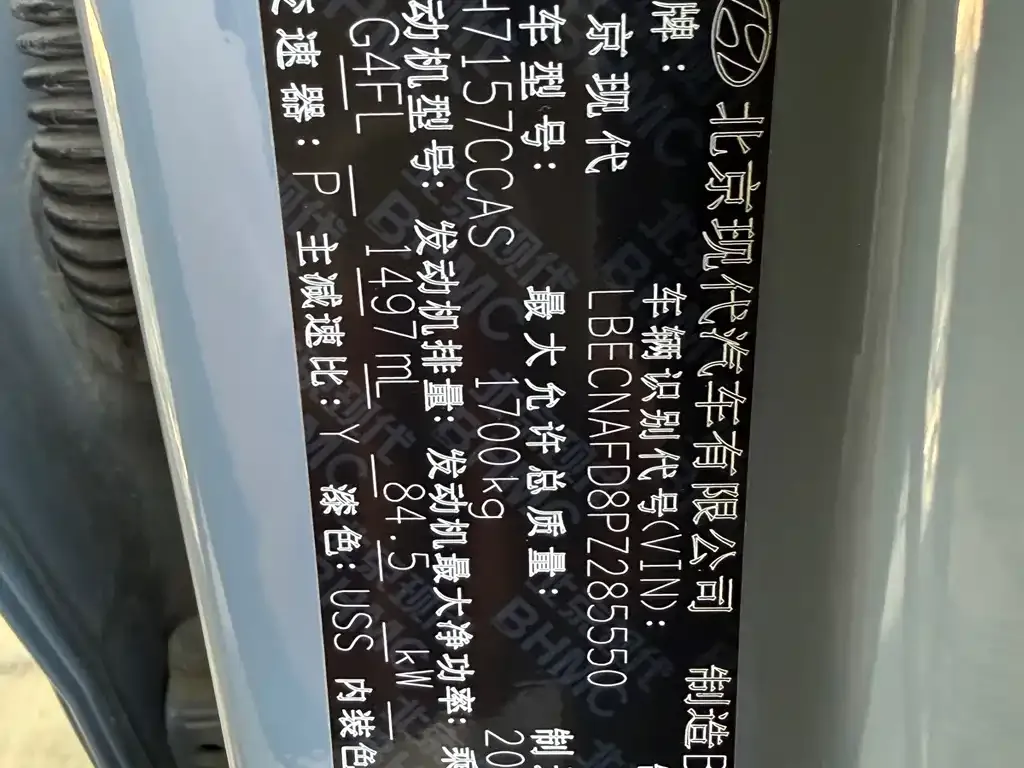 北京现代汽车有限公司 制造
牌: 车辆识别代号(VIN):
京现代 LBECNAFD8PZ285550
车型号: 最大允许总质量: 制
H7157CCAS 1700kg 20
动机型号: 发动机排量: 发动机最大净功率: 乘
G4FL 1497mL 84.5 kW
变速器: P 主减速比: Y 漆色: USS 内装色